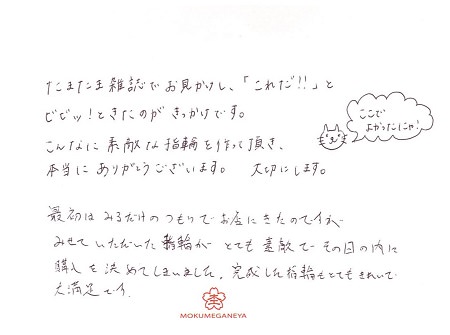 たまたま雑誌でお見かけし、「これだ!!」と
ビビッ!ときたのがきっかけです。
こんなに素敵な指輪を作って頂き、
本当にありがとうございます。 大切にします。
ここで
よかったにゃ!
最初はみるだけのつもりでお店にきたのですが
みせていただいた指輪がとても素敵でその日の内に
購入を決めてしまいました。完成した指輪もとてもきれいで
大満足です。
MOKUMEGANEYA